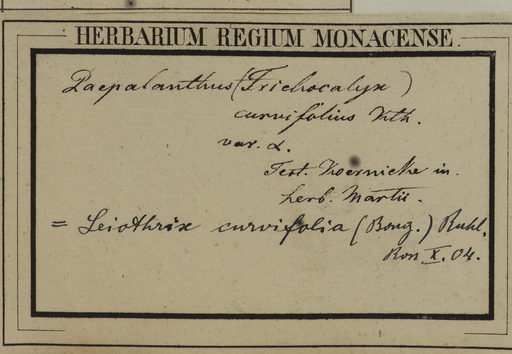 HERBARIUM REGIUM MONACENSE.
Paepalanthus (Trichocalyx)
curvifolius Kth.
var. α.
Test. Koernicke in
herb. Martii.
= Leiothrix curvifolia (Bong.) Ruhl.
X. 04.